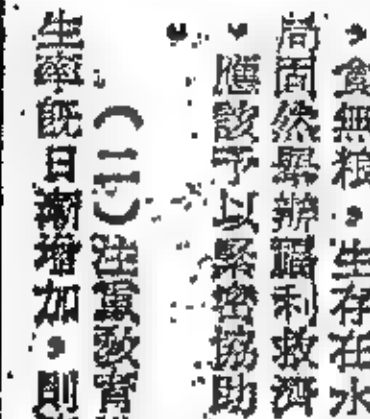 ，食無粮，生存在水
局固然舉辦福利救濟
應該予以緊密協助
（二）注重敎育
生率既日漸增加，則